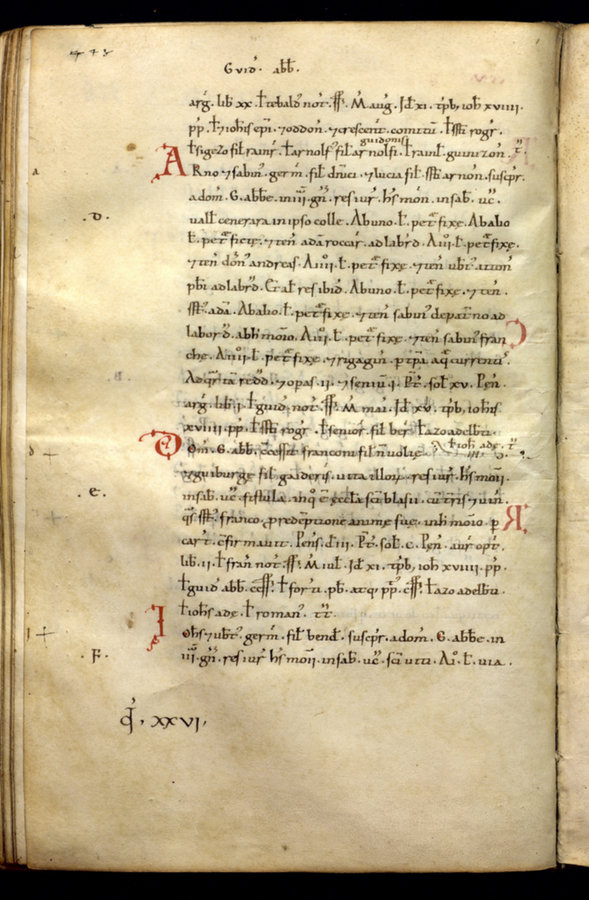 Guid̄. abb̄.
arḡ. lib̄ xx. ł tebald̄ not̄. ss̄. M̄ auḡ. Id̄ xi. tp̄b, ioh̄ xviiii.
pp̄. ł 7 ioh̄is ep̄i. 7 oddon̄. 7 crescent̄. comitū. ł ss̄ti rogr̄.
guidonis
ł sigezo fil̄ rainr̄. ł arnolf̄ fil̄ arnolfi. ł rainł guinizon̄.
ARno 7 sabin̄. germ̄. fil̄ dn̄ici. 7 lucia fil̄. arnon̄. suscpr̄.
a dom̄. G. abbe. in iii gn̄. res iur̄. h̄s mōn̄. in sab̄. uc̄.
uall̄ cenerara in ipso colle. A b uno. ł. pet̄ fixe. A b alio
ł. pet̄ ficte. 7 ten̄ adā roccar̄. a d lab̄rd̄. A iii. ł. pet̄ fixe.
7 ten̄ don̄ andreas. A iiii. ł. pet̄ fixe. 7 ten̄ ub̄t̄
pb̄i ad lab̄rd̄. Et al̄ res ibid̄. A b uno. ł. pet̄ fixe. 7 ten̄.
adā. A b alio. ł. pet̄ fixe. 7 ten̄ sabin̄ ad
labord̄. abh̄ mon̄io. A iii. ł. pet̄ fixe. 7 ten̄ sabin̄ fran
che. A iiii. ł. pet̄ fixe. 7 rigagin̄. p tp̄a aq̄ currentē.
redd̄. 7 opas. ii. 7 seniū. i. Pt̄. sol̄ xv. Pen̄.
arḡ. lib̄ i. ł guid̄. not̄. ss̄. M̄ mai. Id̄ xv. tp̄b, ioh̄is
xviiii. pp̄. ł ss̄ti rogr̄. ł senior̄. fil̄ ber̄. ł azo adelb̄ti.
ł ioh̄ ade.
Dom̄. G. abb̄. cc̄essit franconi fil̄
7 guiburge fil̄ gaideris. uita illor̄. res iur̄. h̄s mōn̄ii.
in sab̄. uc̄. fistula. in q̄ ē eccl̄a sc̄i blasii. cū tr̄is 7 uin̄.
q̄s franco. p redēptione anime sue. in h̄ mōn̄io. p
cart̄. cf̄irmauit. Pens̄. d̄ iii. Pt̄. sol̄. c. Pen̄. aur̄ opt̄.
lib̄. ii. ł fran̄ not̄. ss̄. M̄ iul̄. Id̄ xi. tp̄b, ioh̄ xviiii. pp̄.
ł guid̄ abb̄. ł forti. pb̄. atq, pp̄. ł azo adelb̄ti.
ł ioh̄s ade. ł roman̄. tt̄
Ioh̄s 7 ub̄t̄ germ̄. fil̄ bened̄. suscpr̄. a dom̄. G. abbe. in
iii. gn̄. res iur̄ h̄s mōn̄ii. in sab̄. uc̄. sc̄i uiti. A i. ł. uia.
.D.
.E.
.F.
q̄. xxvi,